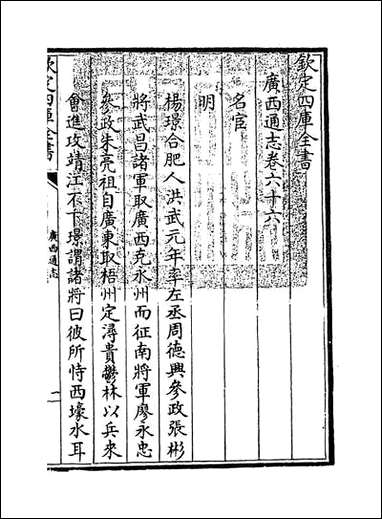 欽定四庫全書
廣西通志卷六十六
名宦
明
楊璟合肥人洪武元年率左丞周德興參政張彬
將武昌諸軍取廣西克永州而征南將軍廖永忠
參政朱亮祖自廣東取梧州定潯貴鬱林以兵來
會進攻靖江不下璟謂諸將曰彼所恃西壕水耳
欽定四庫全書
廣西通志